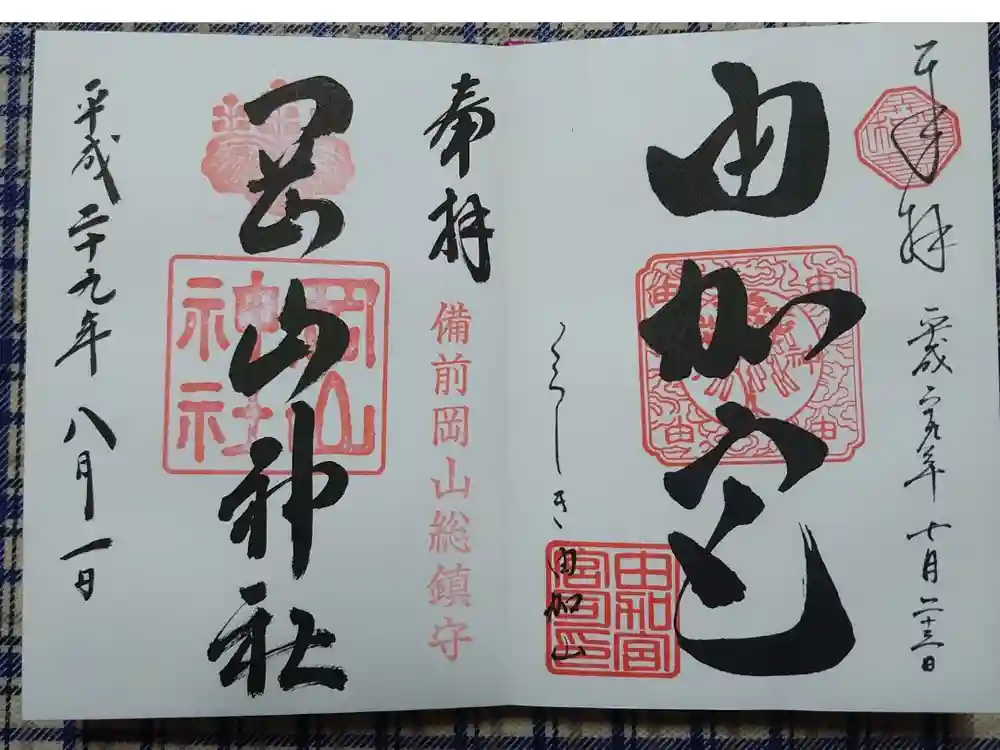 奉拝
平成二十九年 七月二十三日
由加宮
くらしき 由加山
奉拝
備前岡山総鎮守
岡山神社
岡山神社
平成二十九年 八月一日